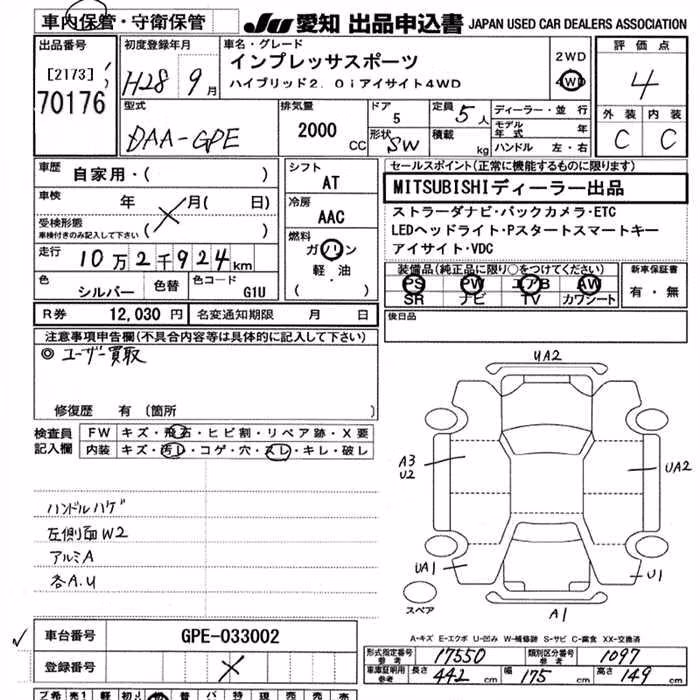 車内保管・守衛保管
JU 愛知 出品申込書 JAPAN USED CAR DEALERS ASSOCIATION
出品番号
[2173]
70176
初度登録年月
H28 9月
車名・グレード
インプレッサスポーツ
ハイブリッド2.0iアイサイト4WD
2WD
4WD
評価点
4
外装 内装
C C
型式
DAA-GPE
排気量
2000 CC
ドア
5
形状 SW
定員 5人
積載 kg
ディーラー・並行
モデル年式 年
ハンドル 左・右
車歴
自家用・( )
車検 年 月( 日)
受検形態
車検付きのみ記入して下さい ( )
走行 10万2千924km
色 シルバー 色替 色コード G1U
シフト
AT
冷房
AAC
燃料
ガソリン
軽・油
( )
セールスポイント(正常に機能するものに限ります)
MITSUBISHIディーラー出品
ストラーダナビ・バックカメラ・ETC
LEDヘッドライト・Pスタートスマートキー
アイサイト・VDC
装備品(純正品に限り○をつけてください)
PS PW エアB AW
SR ナビ TV カワシート
新車保証書
有・無
R券 12,030円 名変通知期限 月 日
後日品
注意事項申告欄(不具合内容等は具体的に記入して下さい)
◎ユーザー買取
修復歴 有 (箇所 )
検査員記入欄
FW キズ・飛石・ヒビ割・リペア跡・X要
内装 キズ・汚レ・コゲ・穴・スレ・キレ・破レ
ハンドルハゲ
左側面W2
アルミA
各A.U
UA2
A3
U2
UA2
UA1
U1
A1
スペア
A-キズ E-エクボ U-凹み W-補修跡 S-サビ C-腐食 XX-交換済
車台番号 GPE-033002
登録番号
形式指定番号 参考 17550 類別区分番号 参考 1097
車庫証明用 参考 長さ 442 cm 幅 175 cm 高さ 149 cm